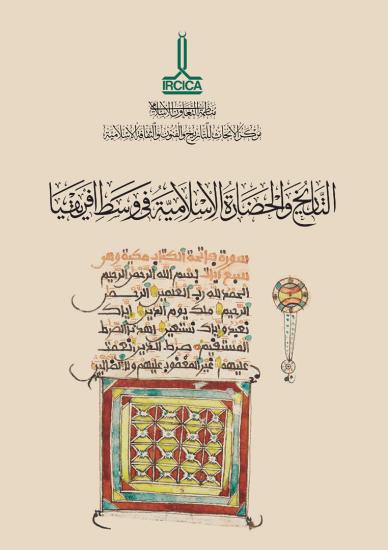 IRCICA
منظمة التعاون الإسلامي
مركز الأبحاث للتاريخ والفنون والثقافة الإسلامية
التاريخ والحضارة الإسلامية في وسط افريقيا
سورة فاتحة الكتاب مكية وهي
سبع ايات بسم الله الرحمن الرحيم
الحمد لله رب العلمين الرحمن
الرحيم ملك يوم الدين اياك
نعبد واياك نستعين اهدنا الصرط
المستقيم صرط الذين انعمت
عليهم غير المغضوب عليهم ولا الضالين